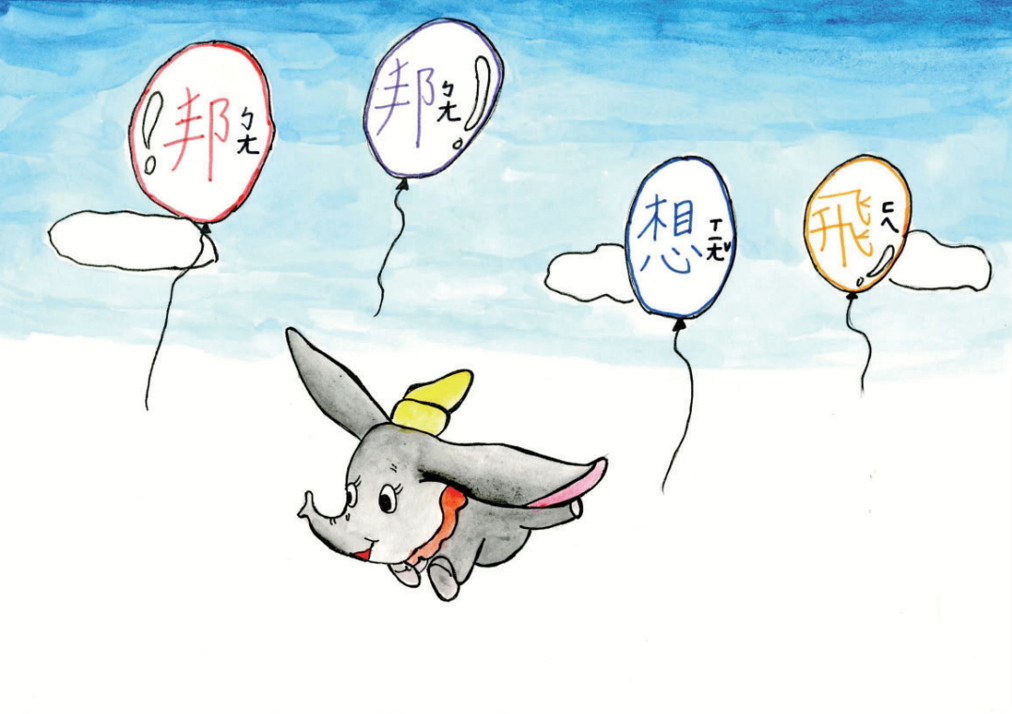 邦ㄅㄤ
邦ㄅㄤ
想ㄒㄧㄤˇ
飛ㄈㄟ